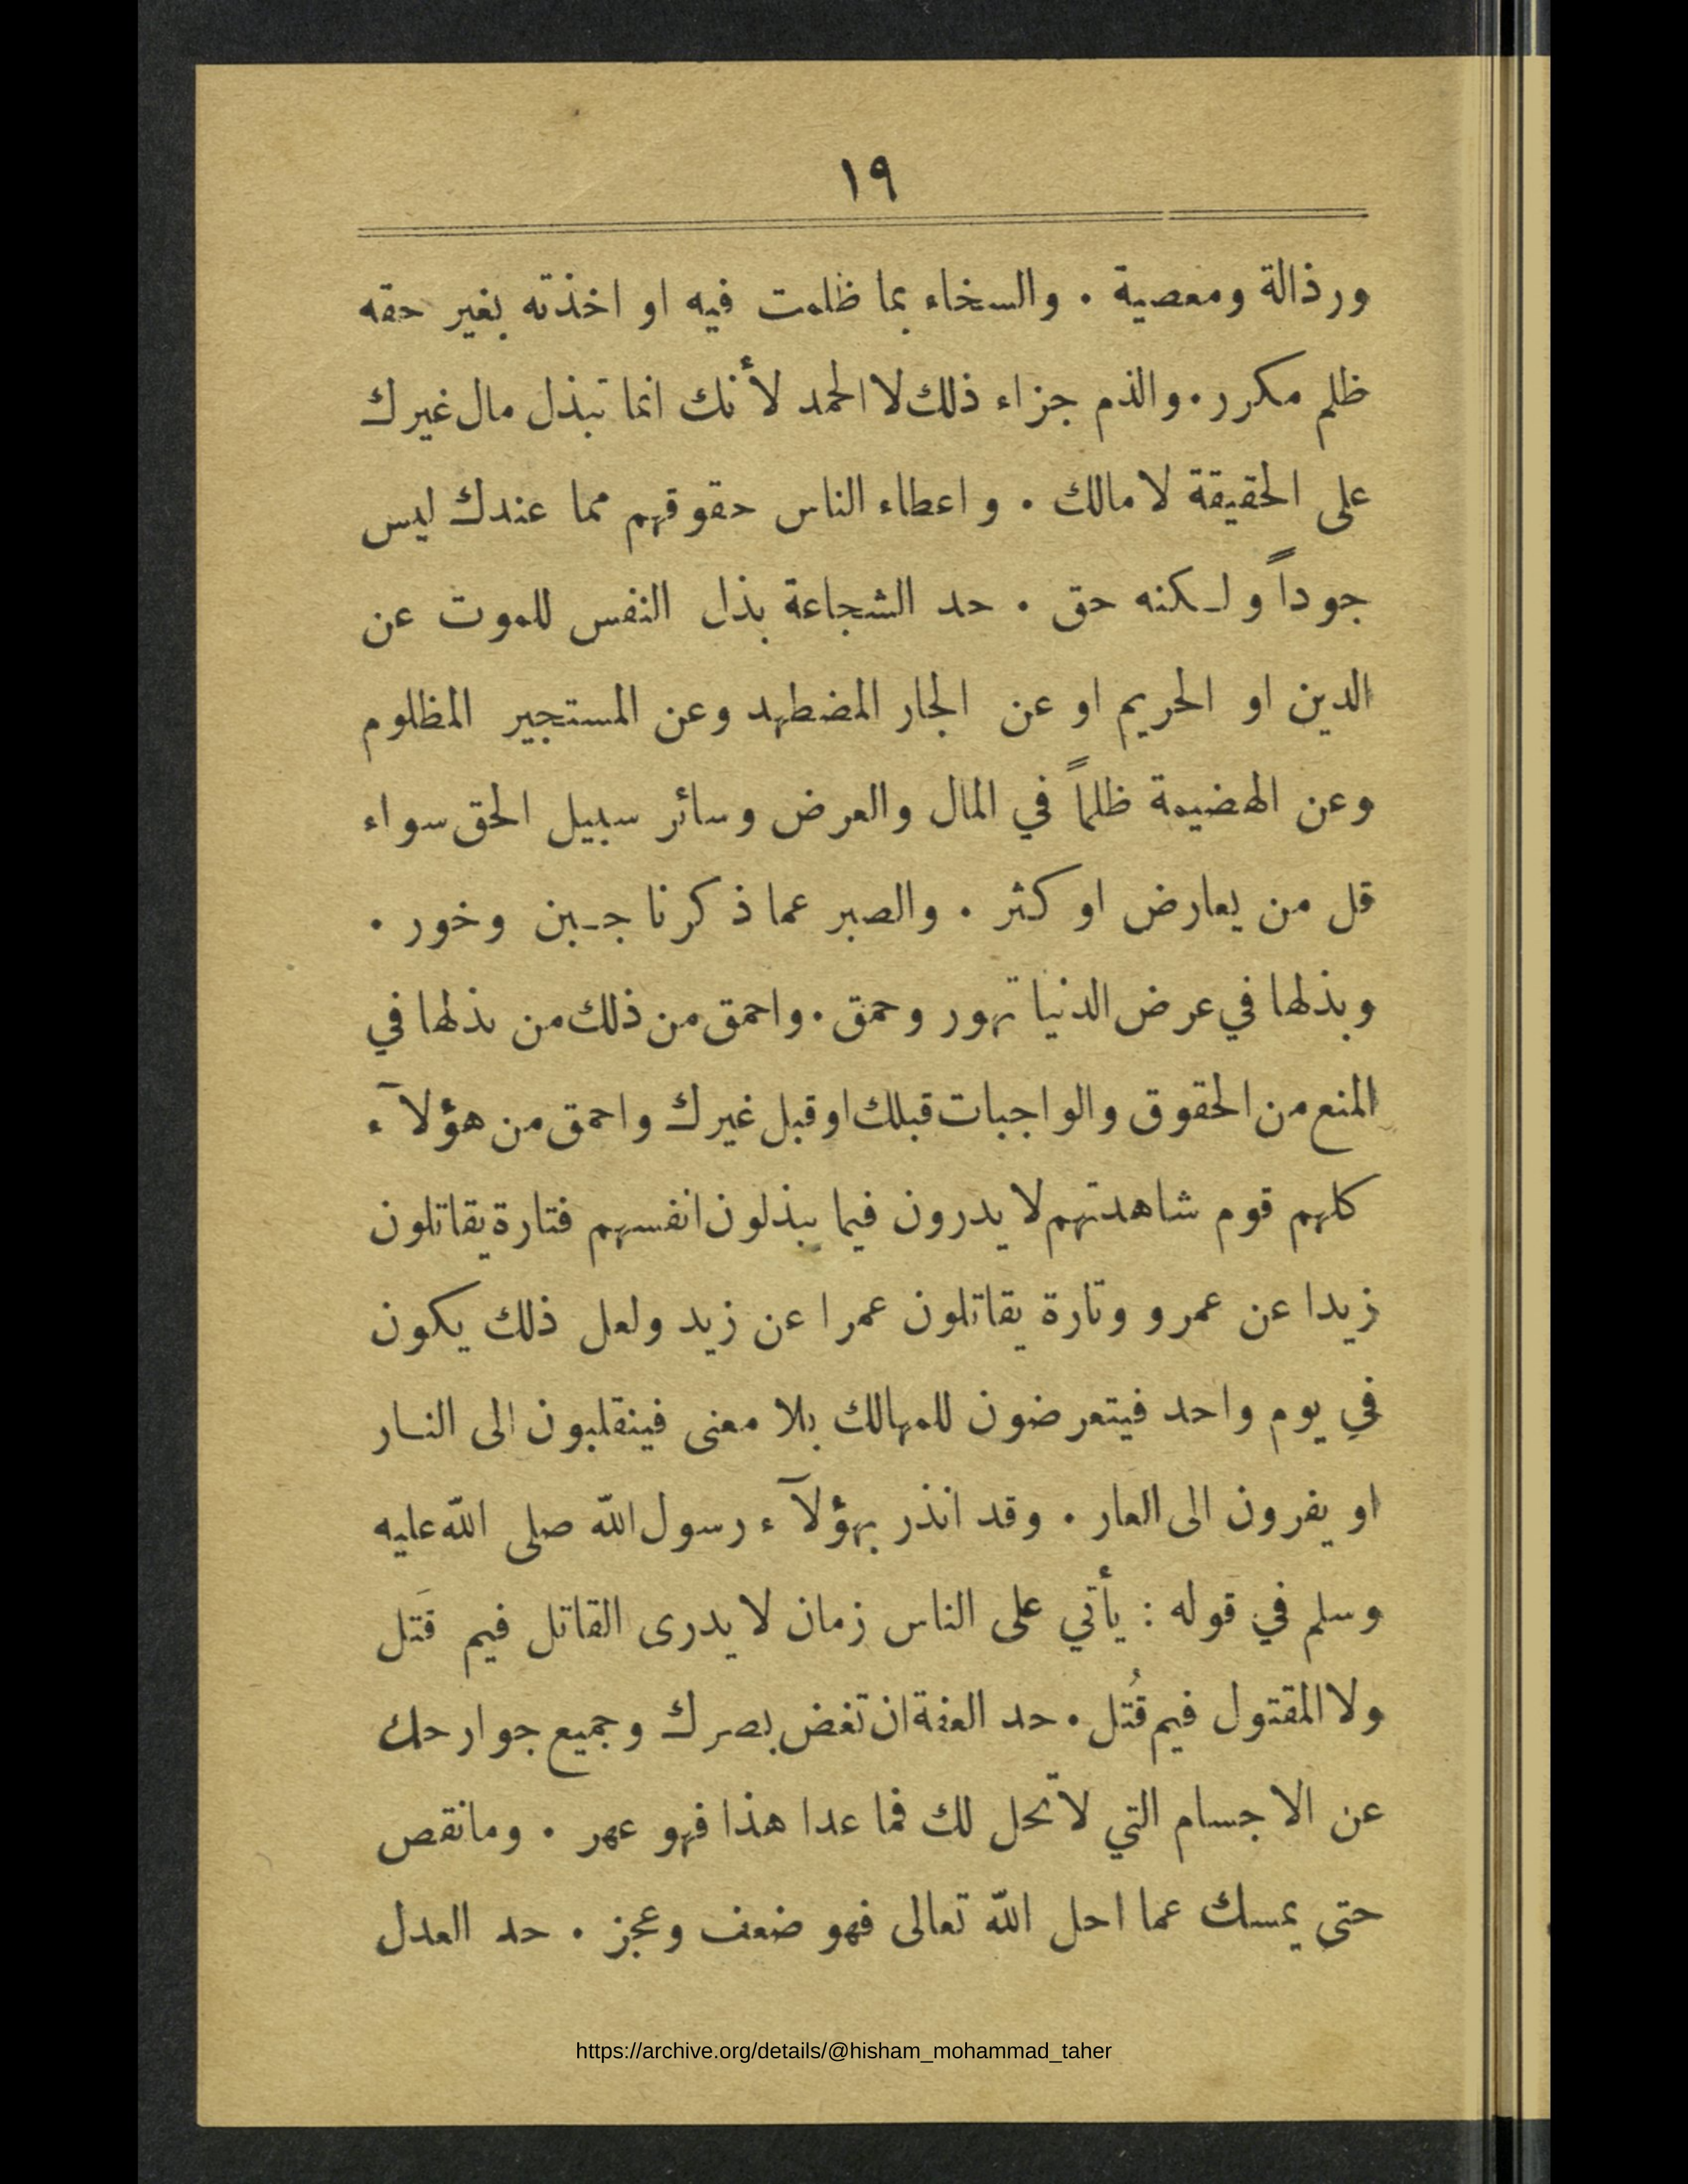 ١٩
ورذالة ومعصية . والسخاء بما ظلمت فيه او اخذته بغير حقه
ظلم مكرر . والذم جزاء ذلك لا الحمد لأنك انما تبذل مال غيرك
على الحقيقة لا مالك . واعطاء الناس حقوقهم مما عندك ليس
جوداً ولكنه حق . حد الشجاعة بذل النفس للموت عن
الدين او الحريم او عن الجار المضطهد وعن المستجير المظلوم
وعن الهضيمة ظلماً في المال والعرض وسائر سبيل الحق سواء
قل من يعارض او كثر . والصبر عما ذكرنا جبن وخور .
وبذلها في عرض الدنيا تهور وحمق . واحمق من ذلك من بذلها في
المنع من الحقوق والواجبات قبلك او قبل غيرك واحمق من هؤلآء
كلهم قوم شاهدتهم لا يدرون فيما يبذلون انفسهم فتارة يقاتلون
زيدا عن عمرو وتارة يقاتلون عمرا عن زيد ولعل ذلك يكون
في يوم واحد فيتعرضون للمهالك بلا معنى فينقلبون الى النار
او يفرون الى العار . وقد انذر بهؤلآء رسول الله صلى الله عليه
وسلم في قوله : يأتي على الناس زمان لا يدرى القاتل فيم قَتل
ولا المقتول فيم قُتل . حد العفة ان تغض بصرك وجميع جوارحك
عن الاجسام التي لا تحل لك فما عدا هذا فهو عهر . وما نقص
حتى يمسك عما احل الله تعالى فهو ضعف وعجز . حد العدل
https://archive.org/details/@hisham_mohammad_taher